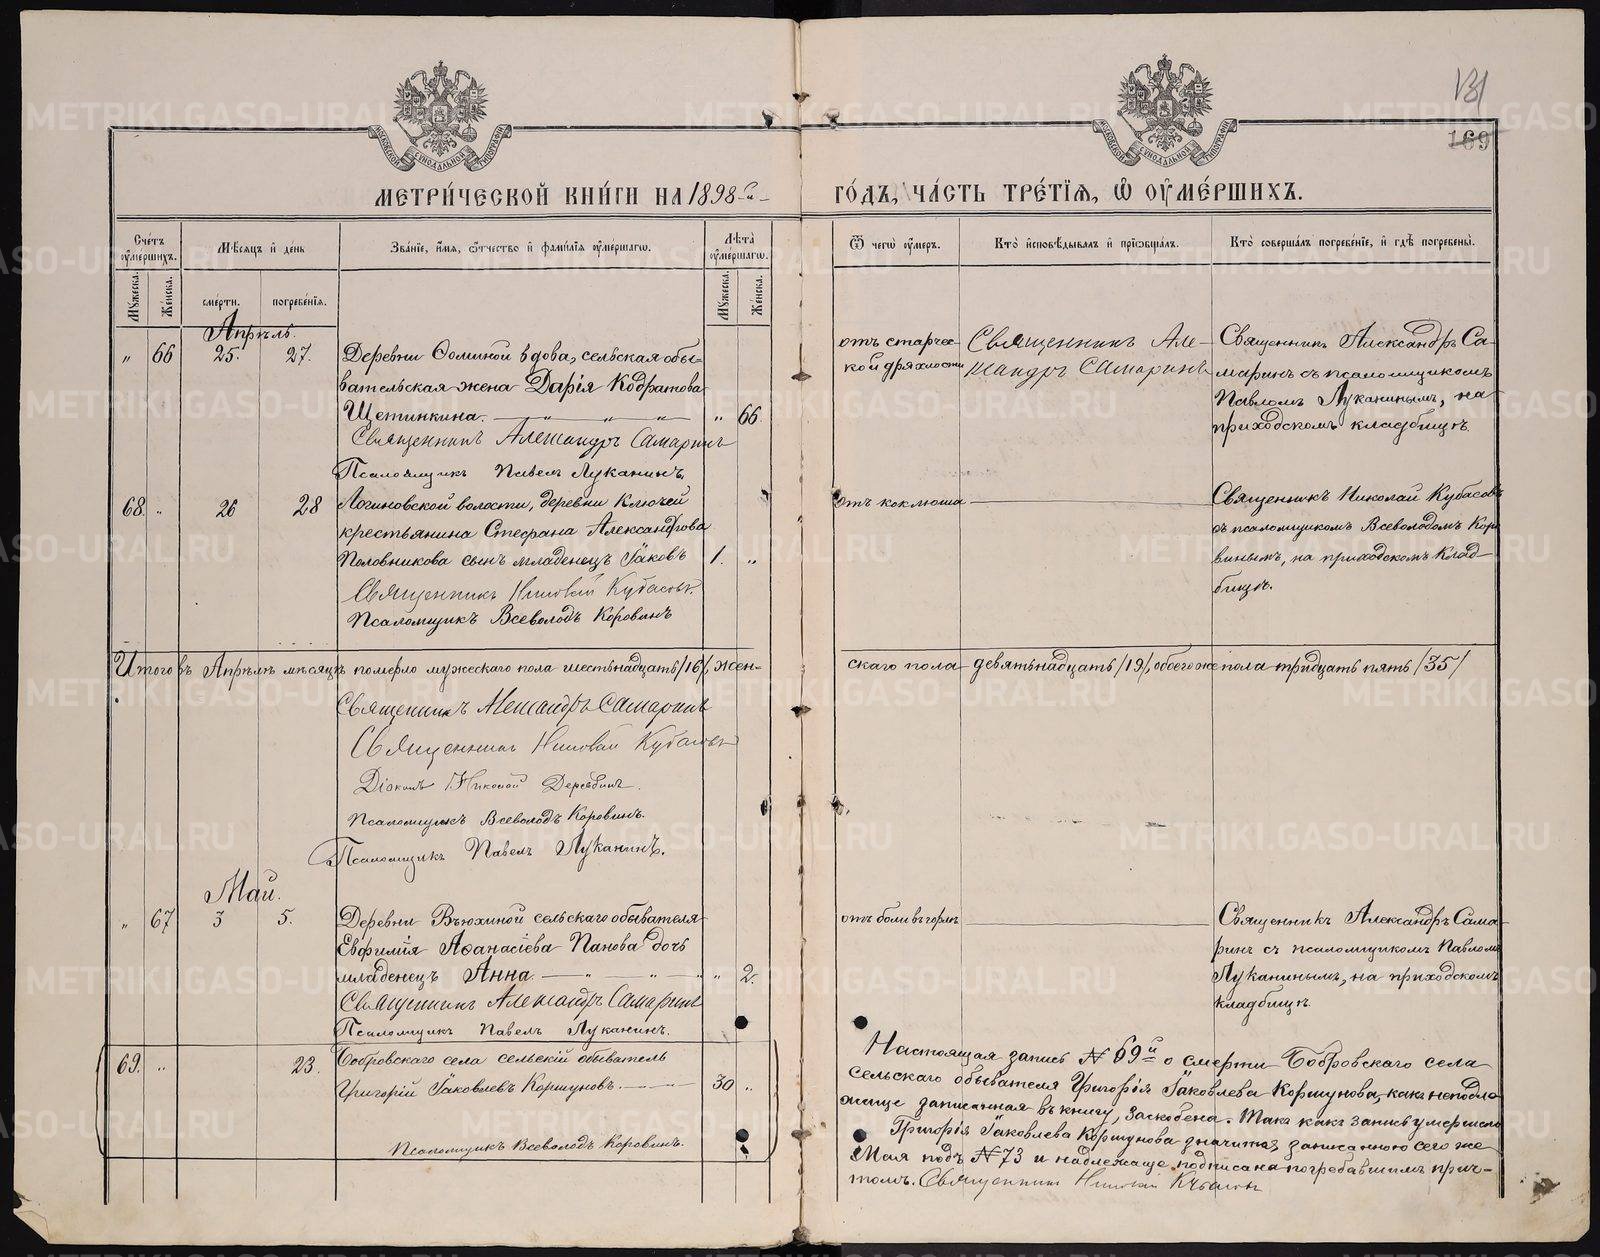 131
169
МОСКОВСКОЙ СѴНОДАЛЬНОЙ ТИПОГРАФІИ
МОСКОВСКОЙ СѴНОДАЛЬНОЙ ТИПОГРАФІИ
МЕТРИ́ЧЕСКОЙ КНИ́ГИ НА 1898-й
ГО́ДЪ, ЧА́СТЬ ТРЕ́ТІѦ, Ѡ ОУ҆МЕ́РШИХЪ.
Сче́тъ оу҆ме́ршихъ.
Мꙋ́жеска.
Же́нска.
Мѣ́сѧцъ и҆ де́нь
сме́рти.
погребе́нїѧ.
Зва́нїе, и҆́мѧ, ѻ҆́тчество и҆ фами́лїѧ оу҆ме́ршагѡ.
Лѣ́та оу҆ме́ршагѡ.
Мꙋ́жеска.
Же́нска.
Ѿ чегѡ̀ оу҆́меръ.
Кто̀ и҆сповѣ́дывалъ и҆ прїѡбща́лъ.
Кто̀ соверша́лъ погребе́нїе, и҆ гдѣ̀ погребены̀.
Апрѣль
„ 66 25. 27. Деревни Фоминой вдова, сельская обы-
вательская жена Дарія Кодратова
Щетинкина. — „ — „ — „ — „ 66.
Священникъ Александръ Самаринъ
Псаломщикъ Павелъ Луканинъ.
отъ старчес-
кой дряхлости
Священникъ Але-
ксандръ Самаринъ
Священникъ Александръ Са-
маринъ съ псаломщикомъ
Павломъ Луканинымъ, на
приходскомъ кладбищѣ.
68. „ 26 28 Логиновской волости, деревни Ключей
крестьянина Стефана Александрова
Половникова сынъ младенецъ Іаковъ 1. „
Священникъ Николай Кубасовъ.
Псаломщикъ Всеволодъ Коровинъ
отъ коклюша
Священникъ Николай Кубасовъ
съ псаломщикомъ Всеволодомъ Коро
винымъ, на приходскомъ клад-
бищѣ.
Итого въ Апрѣлѣ мѣсяцѣ померло мужескаго пола шестьнадцать /16/, жен-
скаго пола девятьнадцать /19/, обоего же пола тридцать пять /35/
Священникъ Александръ Самаринъ
Священникъ Николай Кубасовъ
Діаконъ Николай Деревнинъ.
Псаломщикъ Всеволодъ Коровинъ.
Псаломщикъ Павелъ Луканинъ.
Май.
„ 67 3 5. Деревни Вьюхиной сельскаго обывателя
Евфимія Аѳанасіева Панова дочь
младенецъ Анна. — „ — „ — „ „ 2.
Священникъ Александръ Самаринъ
Псаломщикъ Павелъ Луканинъ.
отъ боли въ горлѣ
Священникъ Александръ Сама-
ринъ съ псаломщикомъ Павломъ
Луканинымъ, на приходскомъ
кладбищѣ.
69. „ 23. Бобровскаго села сельскій обыватель
Григорій Іаковлевъ Коршуновъ. — „ 30 „
Псаломщикъ Всеволодъ Коровинъ.
Настоящая запись № 69й о смерти Бобровскаго села
сельскаго обывателя Григорія Іаковлева Коршунова, какъ неподле
жаще записанная въ книгу, заскоблена. Такъ какъ запись умершаго
Григорія Іаковлева Коршунова значится записанною сего же
Мая подъ № 73 и надлежаще подписана погребавшимъ прич-
томъ. Священникъ Николай Кубасовъ